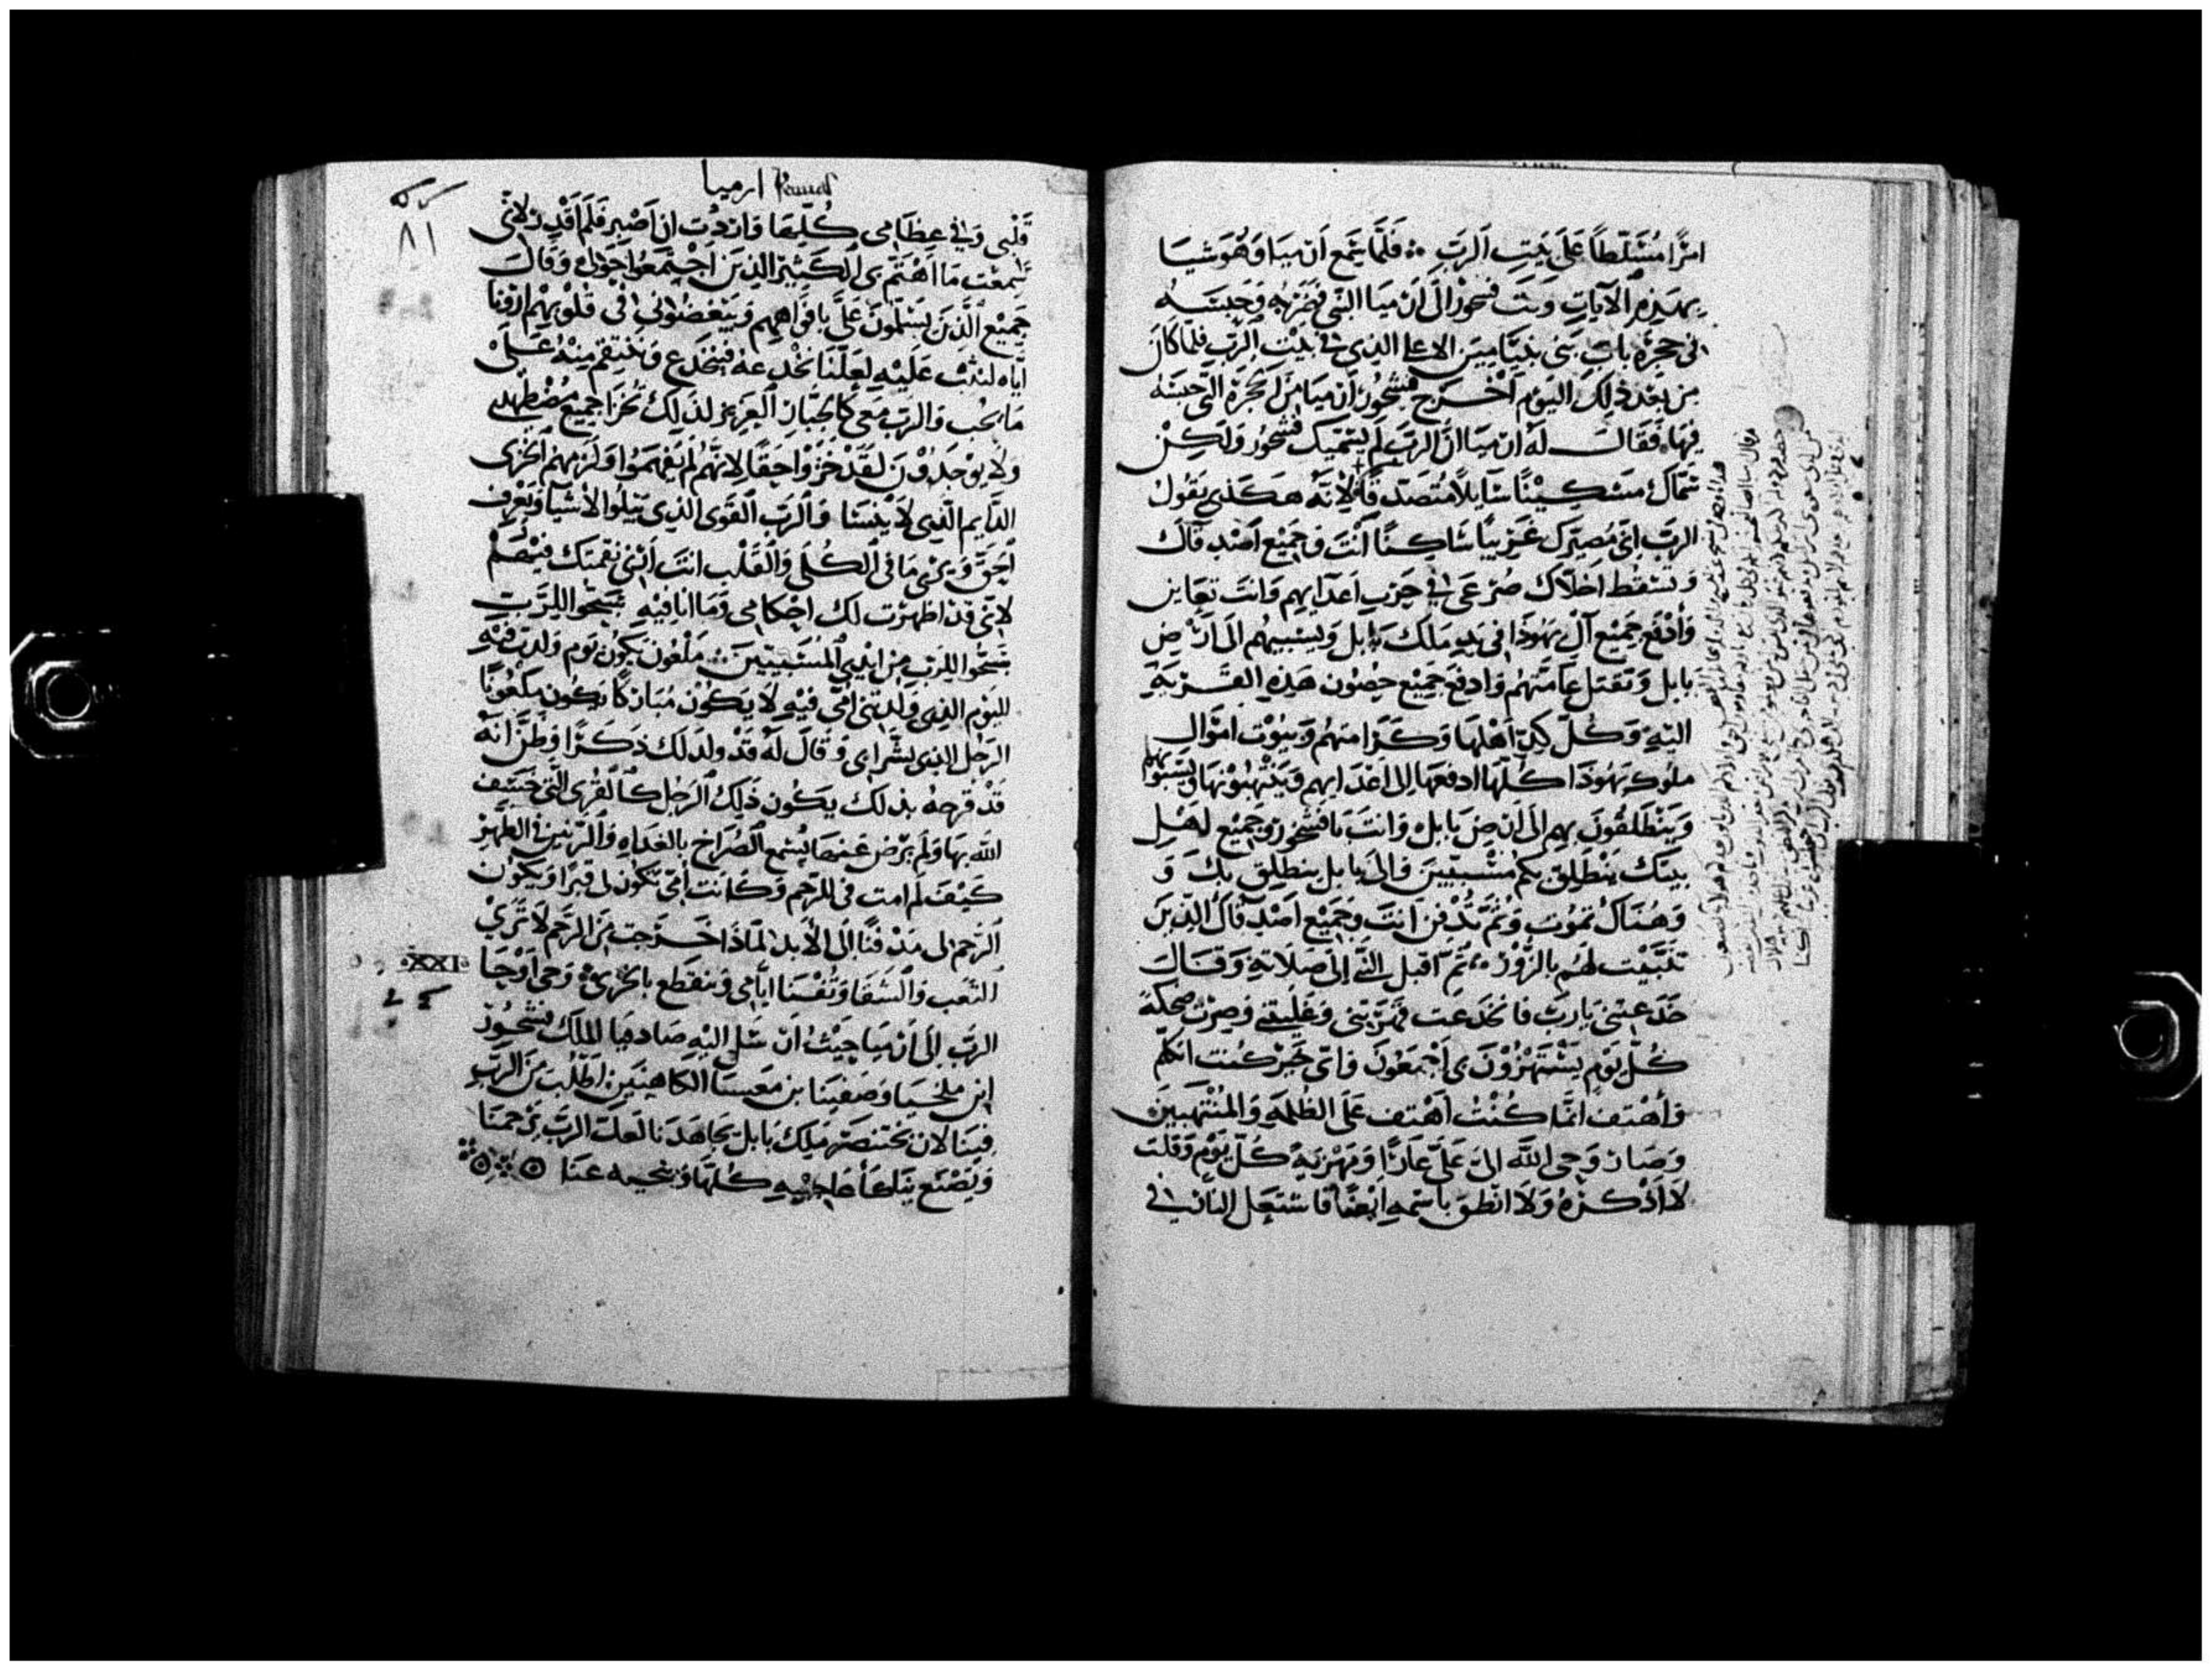 امرًا مُسَلّطاً عَلَى بَيتِ الرَبّ ۞ فَلَمَّا سَمِع ارميا وَهُوَ شيا
بهَذِهِ الآيَاتِ وَثبَ فشحور الَى ارميا النّبي فَضَرَبَهُ وَحَبسَهُ
فى حجرَةِ بابِ بَنى بنيَامِين الاعلا الذى فى بَيْتِ الرَبّ فلمّا كَانَ
مِن بَعْد ذَلِك اليَوم اَخْرَج فشحُور ارميا مِن الحجرَةِ التى حَبسَهُ
فيهَا فَقَالَ لهُ ارميا انَّ الربّ لَم يسَمّيك فشحُور وَلَكِنْ
سَمّاكَ مسْكِينًا سَايلاً مُتَصَدّقًا لاِنّهُ هَكَذى يَقُولُ
الربّ اِنى مُصَيّرك غَريبًا سَاكِنًا اَنْتَ وَجَميْع اَصْدِقَآكَ
وَتَسْقُط اَخِلاّك صُرعَى فى حَرب اَعدَايِهِم وَانتَ تعَاين
وَأَدْفَع جَمِيْع آل يَهُوذَا فى يَدِ مَلكَ بَابِل وَيسْبِيهُم الَى ارْضِ
بابل وَتَقتل عَامّتَهُم وَادفَع جَميْع حصُون هَذِهِ القَرْيَةِ
اليَهِ وَكُلّ كَدّ اَهْلهَا وَكَرَامتهُم وَبيُوْت امْوَال
ملُوك يَهُوذَا كُلّهَا ادفعَهَا اِلى اَعْدَايهِم وَينتَهِبُونهَا وَيَسْبُوا بهِم
وَيَنْطَلقُونَ بهِم الى ارضِ بَابل وَانتَ يَا فَشحُور وَجَميْع اَهْلِ
بيتك يَنْطَلِق بكُم مُسْبِيّينَ وَالى بابل ينطَلق بكَ وَ
وَهُنَاكَ تمُوتُ وَثُمّ تُدْفن اَنتَ وَجَميْع اَصْدِقَآكَ الّذِينَ
تَنَبّيْت لهُم بالزُّوْرِ ۞ ثُمّ اَقبل النّبى اِلى صَلاَتهِ وَقَالَ
خَدَعتنى يَارب فَانخَدَعت قهَرْتَنى وَغَلَبتَنى وَصِرْت ضحكة
كُلّ يَوم يَسْتَهزوُن بى اَجْمَعُونَ وَانى حِينَ كُنت اتكلّم
وَأهْتِف انّمَا كُنْتُ اَهْتف عَلَى الظلمَةِ وَالمُنْتَهِبينَ
وَصَارَ وَحى الله الىَّ عَلَىَّ عَارًا وَمهزيَة كُلّ يَوْم وَقلت
لاَ اَذْكرهُ وَلاَ انْطق باسْمِهِ اَيْضًا فَاشتعَل النار فى
ارميا
٨١
قَلْبى وَفى عِظَامى كُلّهَا وَاردْت ان اَصْبِر فَلَم اَقْدر لاَنى
سَمِعْت مَا اَهتَم بى الكَثِير الذينَ اجْتمعُوا حَولى وَقَالَ
جَميْع الّذينَ يَسَلّمُونَ عَلَىَّ بافْوَاهِهِم وَيَبْغضُونى فى قلُوْبهِم ارُونا
ايَّاه لنثبَ عَلَيْهِ لعَلّنَا نَخْدعهُ فينخَدع وَننتقم مِنْهُ عَلى
مَا نحُب وَالربّ مَعى كَالجبّار العَزيز لذَلك يَخزَا جَميْع مُضْطهدى
وَلاَ يوْجَدُوْنَ لقَدْ خَزُوْا حَقًا لاِنهُم لَم يَفهَموُا وَلَزمَهُم الخزى
الدّايم الّذى لاَ يُنْسَا وَالربّ القَوى الذى يَبْلوا الاَشيآ وَيَعْرف
اَلحَق وَيَرَى مَا فى الكُلى وَالقَلْب انتَ اَرنى نقمتك فيْهم
لاَنى قد اظهَرت لك احْكَامى وَمَا انا فِيْهِ سَبّحُوا للرّب
سَبّحُوا للرّبّ مِن ايْدى المُسَبِيّينَ ۞ مَلْعُون يَكُون يَوم وَلدت فِيْهِ
اليَوم الذى وَلدتنى امّى فيْهِ لاَ يَكُوْن مُبَاركًا يَكُون مَلعُوْنًا
الرَجل الذى بَشّر ابى وَقَالَ لَهُ قَدْ ولد لَك ذَكرًا وَظنَّ انّهُ
قَدْ فرحهُ بذلك يَكُون ذَلِكَ الرَجُل كَالقُرَى الّتى خسَف
الله بهَا وَلَم يَرْض عَنهَا يُسْمع الصُراخ بالغدَاهِ وَالرّنين فى الظهْر
كَيْفَ لَم امت فى الرّحِم وَكَانت اُمّى تكُون لى قبرًا وَيَكُوْن
الرحِم لى مَدْفنًا اِلَى الاَبد لمَاذا خَرجت مِن الرّحِم لاَرَى
التّعَب وَالشقَا وَتُفْنَا ايَّامى وَتنقطع بالخزى ۞ وَحى اَوْحَا
XXI
الربّ اِلى ارميا حَيثُ ارسَل اليْهِ صَادقيا الملك فشحُور
ابن ملخيا وَصَفنيا بن مَعسيَا الكَاهِنَين اطْلُبَ مِنَ الرَبّ
فينَا لان بختنصّر مَلِك بَابل يجَاهدنا لَعلّ الربّ يَرْحمنَا
وَيَصْنَع بنَا كَا عَاجيْبِهِ كُلّهَا وَينحيه عنَا